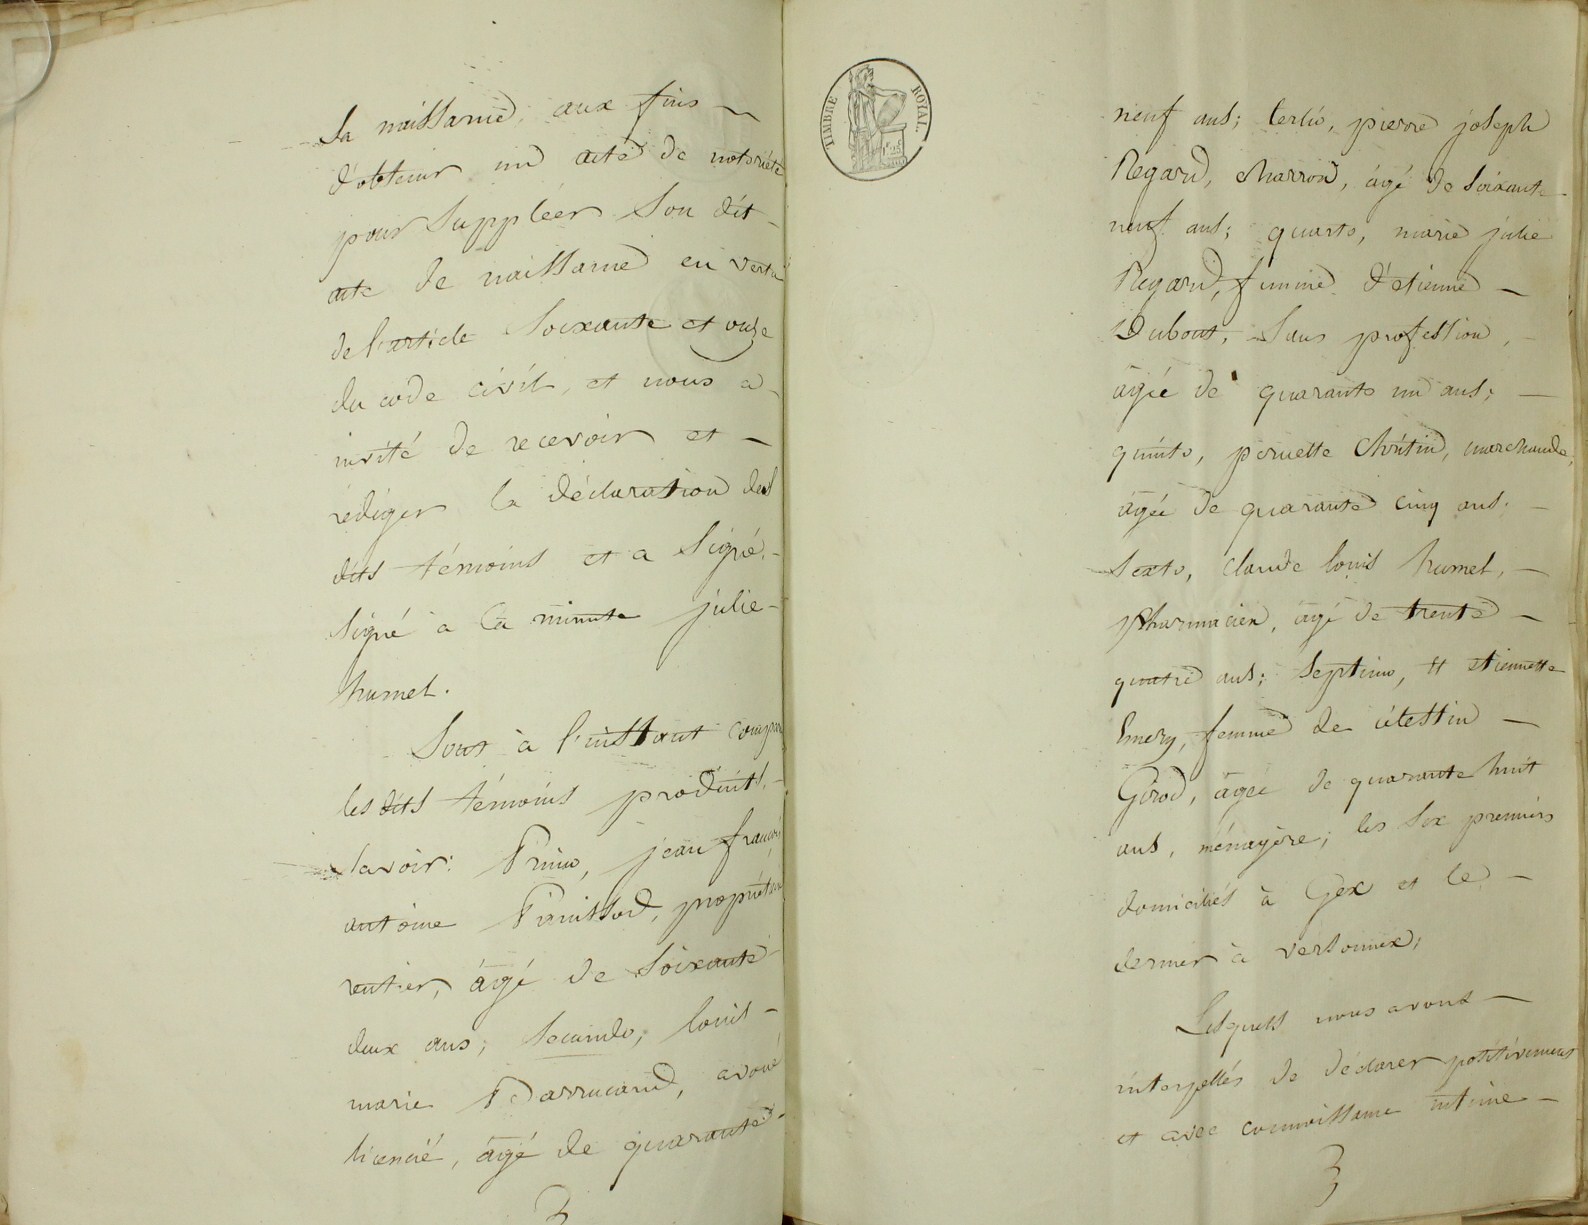 Sa naissance, aux fins
d'obtenir un acte de notoriété
pour suppléer son dit
acte de naissance en vertu
de l'article soixante et onze
du code civil, et nous a
invité de recevoir et
rédiger la déclaration des
dits témoins et a signé.
signé à la minute julie
humel.
Sont à l'instant compar
les dits témoins produits,
savoir: Primo, jean françois
antoine, propriétaire
rentier, âgé de soixante
deux ans; secundo, louis
marie, avoué
licencié, âgé de quarante
3
TIMBRE ROYAL.
neuf ans; tertio, pierre joseph
Regard, charron, âgé de soixante
neuf ans; quarto, marie julie
Regard, femme d'etienne
Dubout, sans profession,
âgée de quarante un ans;
quinto, pernette, marchande,
âgée de quarante cinq ans;
sexto, claude louis humel,
pharmacien, âgé de trente
quatre ans; septimo, etiennette
Emery, femme de célestin
Girod, âgée de quarante huit
ans, ménagère; les six premiers
domiciliés à Gex et le
dernier à versonnex;
Lesquels nous avons
interpellés de déclarer positivement
et avec connaissance intime
3